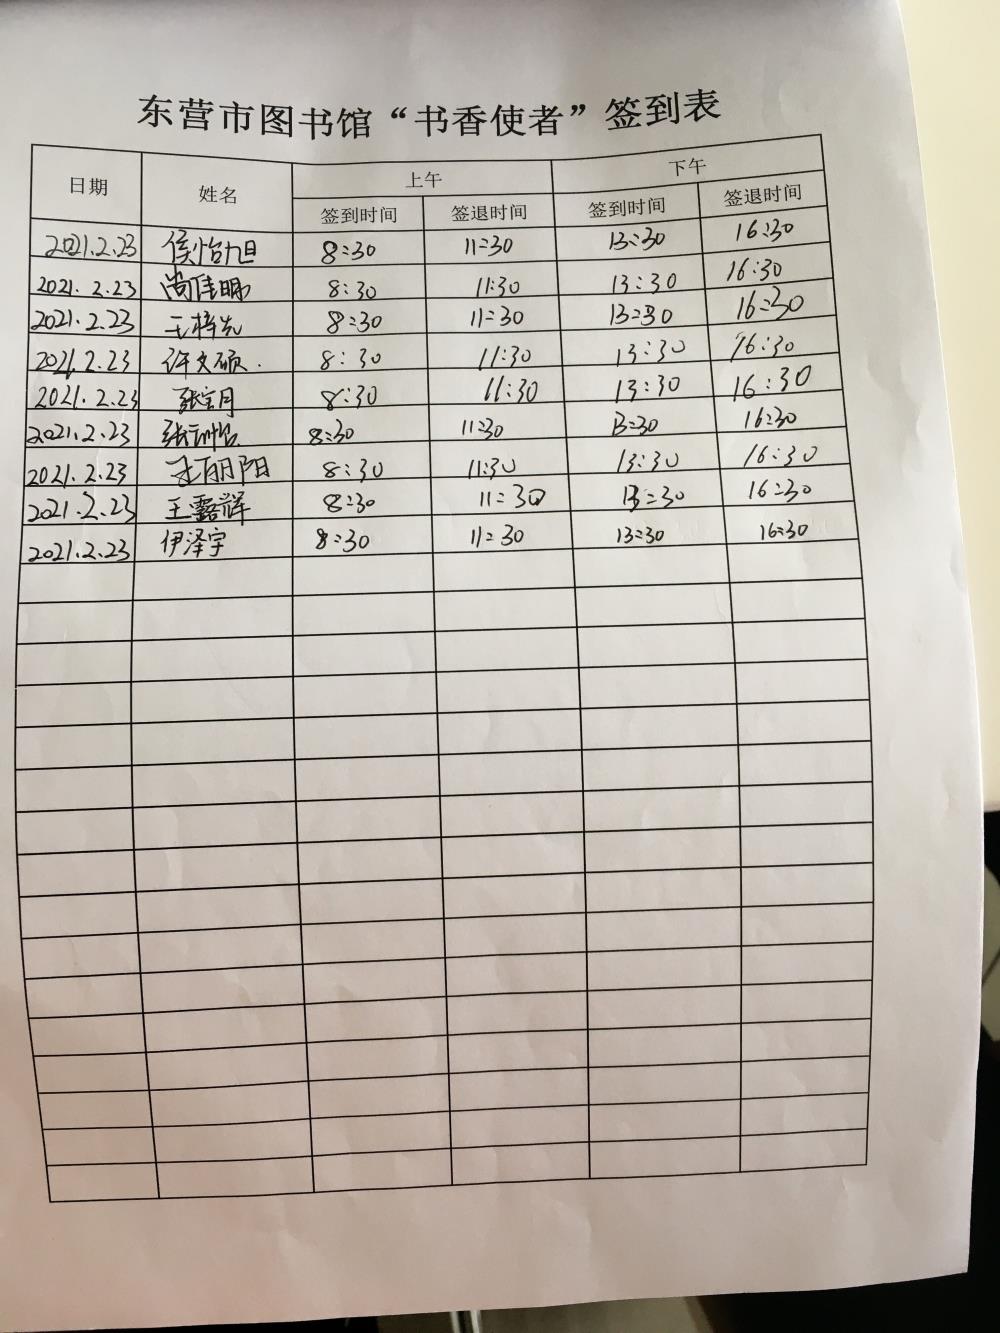 东营市图书馆“书香使者”签到表
日期 姓名 上午 下午
签到时间 签退时间 签到时间 签退时间
2021.2.23 侯怡旭 8:30 11:30 13:30 16:30
2021.2.23 尚佳 8:30 11:30 13:30 16:30
2021.2.23 王梓先 8:30 11:30 13:30 16:30
2021.2.23 许文硕 8:30 11:30 13:30 16:30
2021.2.23 张宝月 8:30 11:30 13:30 16:30
2021.2.23 张 8:30 11:30 13:30 16:30
2021.2.23 阳 8:30 11:30 13:30 16:30
2021.2.23 王露辉 8:30 11:30 13:30 16:30
2021.2.23 伊泽宇 8:30 11:30 13:30 16:30